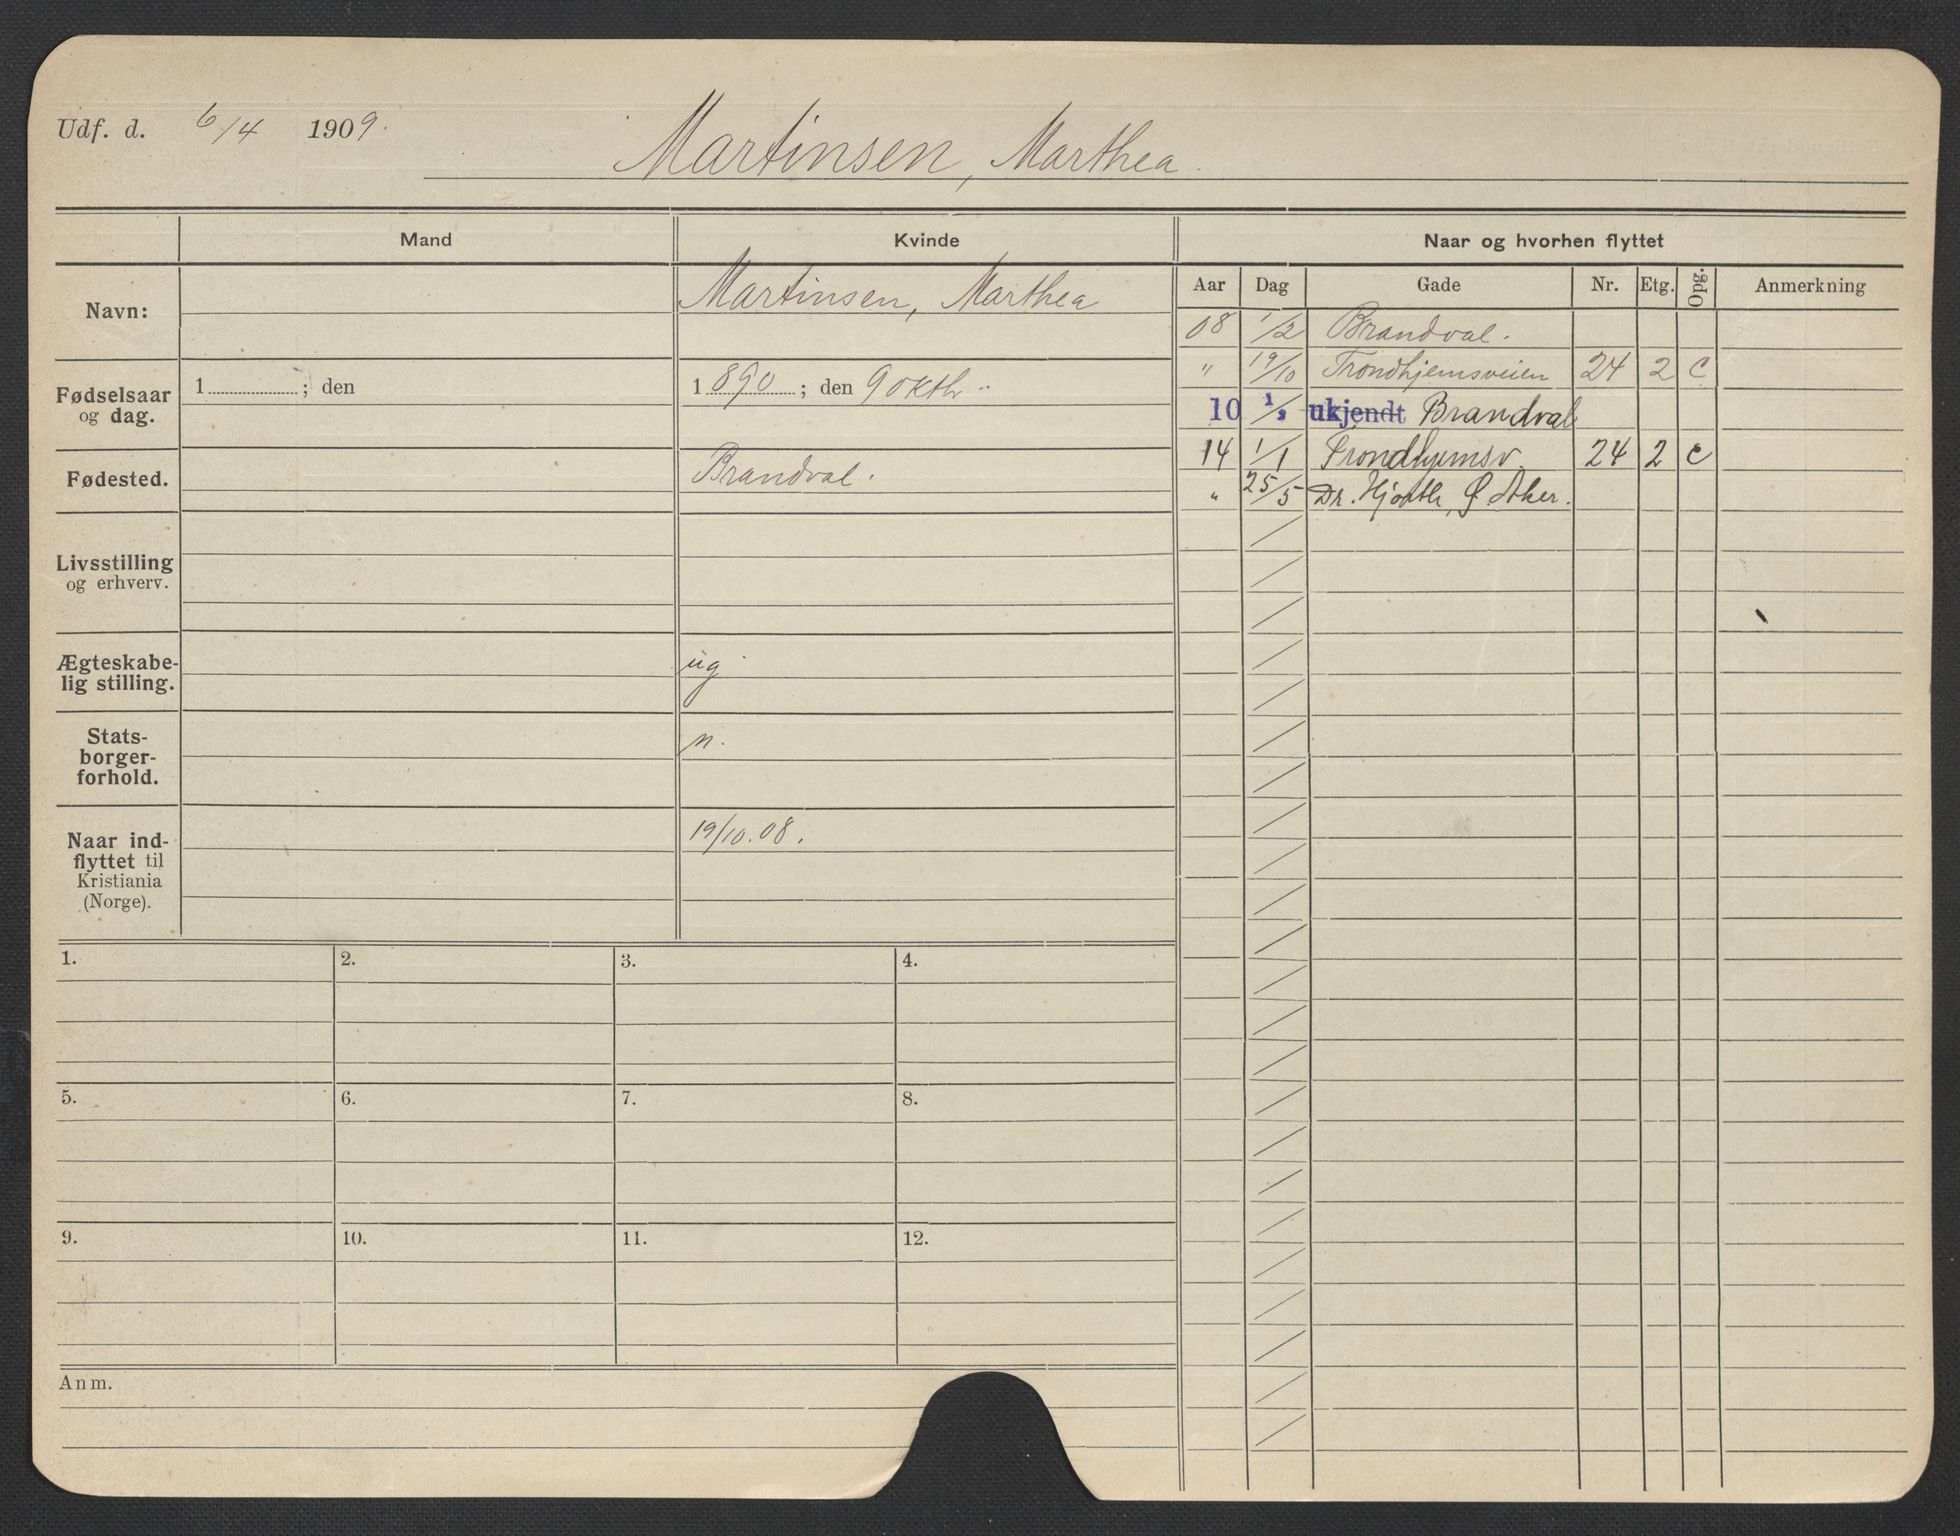 Udf. d. 6/4 1909.
Martinsen, Marthea
Mand Kvinde Naar og hvorhen flyttet
Aar Dag Gade Nr. Etg. Opg. Anmerkning
Navn: Martinsen, Marthea
Fødselsaar og dag. 1 ; den 1890 ; den 9 oktbr.
Fødested. Brandval.
Livsstilling og erhverv.
Ægteskabe-
lig stilling. ug
Stats-
borger-
forhold. n.
Naar ind-
flyttet til
Kristiania
(Norge). 19/10.08.
08 1/2 Brandval.
" 19/10 Trondhjemsveien 24 2 C
10 1/2 ukjendt Brandval
14 1/1 Trondhjemsv. 24 2 C
" 25/5 Dr. Hjorth, Ø. Aker.
1. 2. 3. 4.
5. 6. 7. 8.
9. 10. 11. 12.
Anm.